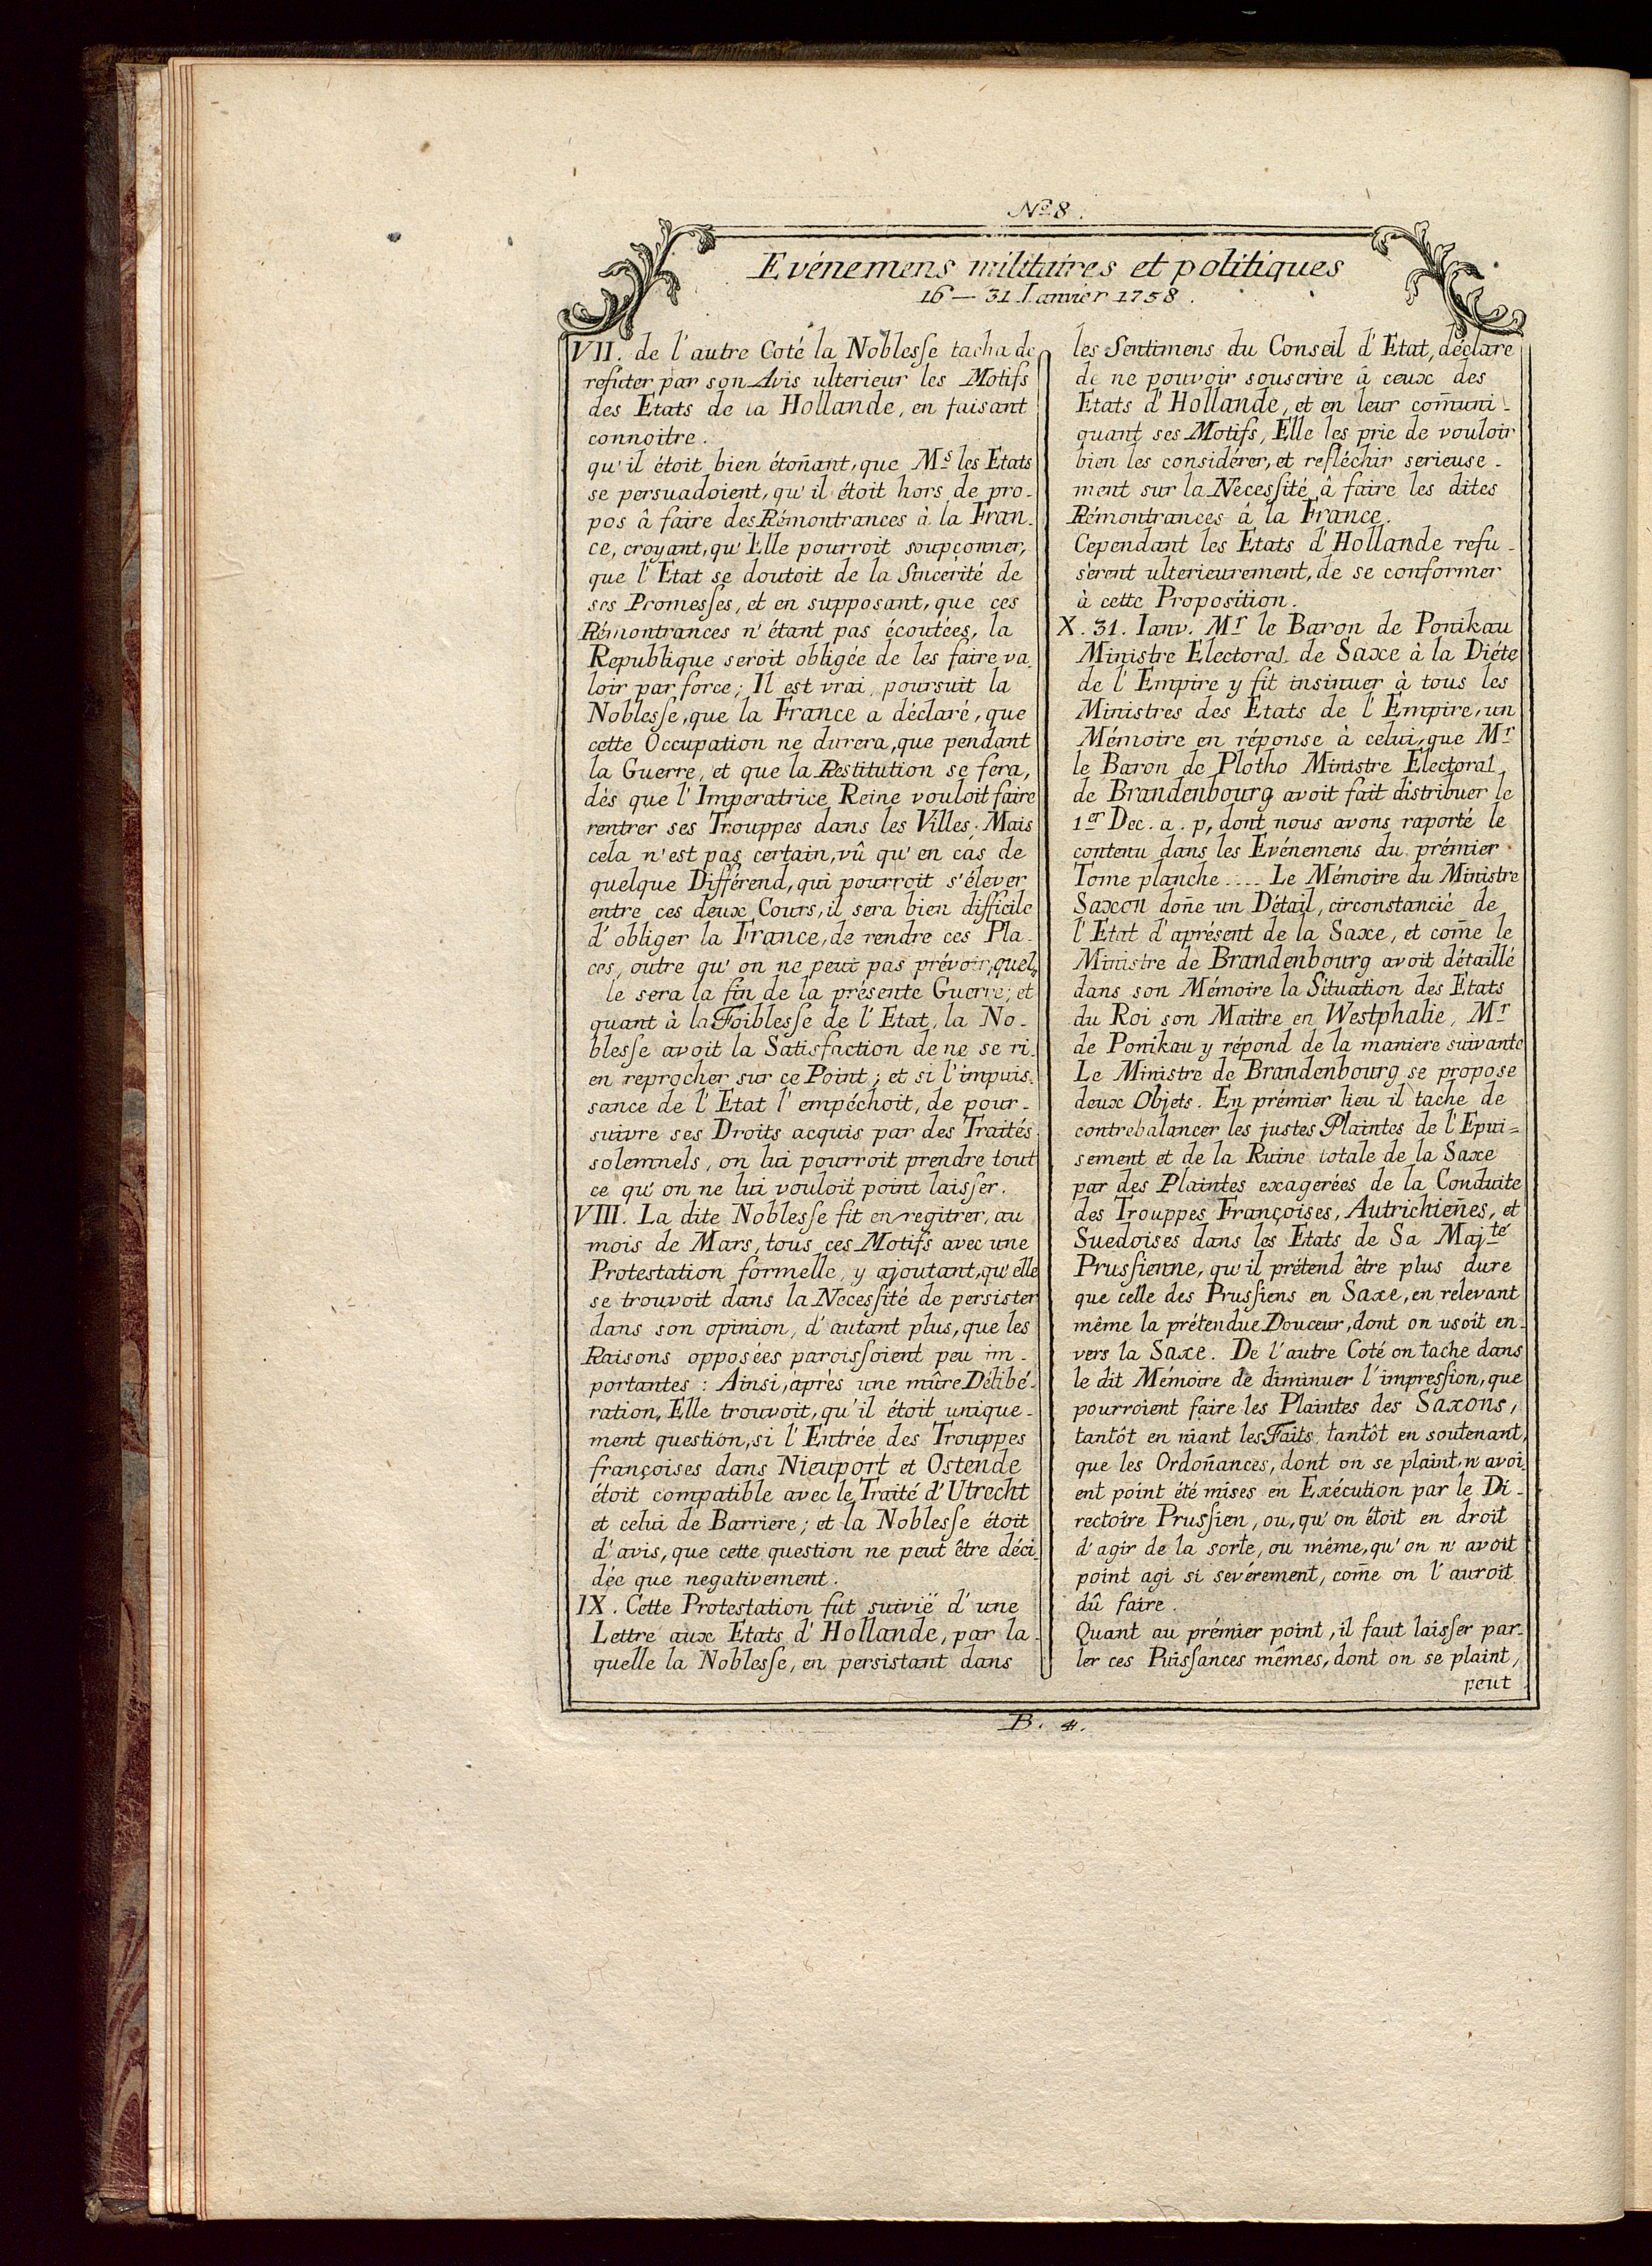 No. 8.
Evénemens militaires et politiques
16 — 31 Ianvier 1758.
VII. de l'autre Coté la Noblesse tacha de
refuter par son Avis ulterieur les Motifs
des Etats de la Hollande, en faisant
connoitre.
qu'il étoit bien étoñant, que Ms les Etats
se persuadoient, qu'il étoit hors de pro-
pos â faire des Rémontrances à la Fran-
ce, croyant, qu'Elle pourroit soupçonner,
que l'Etat se doutoit de la Sincérité de
ses Promesses, et en supposant, que ces
Rémontrances n'étant pas écoutées, la
Republique seroit obligée de les faire va-
loir par force; Il est vrai, poursuit la
Noblesse, que la France a déclaré, que
cette Occupation ne durera, que pendant
la Guerre, et que la Restitution se fera,
dés que l'Imperatrice Reine vouloit faire
rentrer ses Trouppes dans les Villes; Mais
cela n'est pas certain, vû qu'en cás de
quelque Différend, qui pourroit s'élever
entre ces deux Cours, il sera bien difficile
d'obliger la France, de rendre ces Pla-
ces, outre qu'on ne peut pas prévoir, quel-
le sera la fin de la présente Guerre; et
quant à la Foiblesse de l'Etat, la No-
blesse avoit la Satisfaction de ne se ri-
en reprocher sur ce Point; et si l'impuis-
sance de l'Etat l'empéchoit, de pour-
suivre ses Droits acquis par des Traités
solemnels, on lui pourroit prendre tout
ce qu'on ne lui vouloit point laisser.
VIII. La dite Noblesse fit enregitrer, au
mois de Mars, tous ces Motifs avec une
Protestation formelle, y ajoutant, qu'elle
se trouvoit dans la Necessité de persister
dans son opinion, d'autant plus, que les
Raisons opposées paroissoient peu im-
portantes: Ainsi, après une mûre Délibé-
ration, Elle trouvoit, qu'il étoit unique-
ment question, si l'Entrée des Trouppes
françoises dans Nieuport et Ostende
étoit compatible avec le Traité d'Utrecht
et celui de Barriere; et la Noblesse étoit
d'avis, que cette question ne peut être déci-
dée que negativement.
IX. Cette Protestation fut suivië d'une
Lettre aux Etats d'Hollande, par la-
quelle la Noblesse, en persistant dans
les Sentimens du Conseil d'Etat, déclare
de ne pouvoir souscrire â ceux des
Etats d'Hollande, et en leur com̄uni-
quant ses Motifs, Elle les prie de vouloir
bien les considérer, et refléchir serieuse-
ment sur la Necessité â faire les dites
Rémontrances à la France.
Cependant les Etats d'Hollande refu-
sèrent ulterieurement, de se conformer
à cette Proposition.
X. 31. Ianv. Mr le Baron de Ponikau
Ministre Electoral de Saxe à la Diéte
de l'Empire y fit insinuer à tous les
Ministres des Etats de l'Empire, un
Mémoire en réponse à celui, que Mr
le Baron de Plotho Ministre Electoral
de Brandenbourg avoit fait distribuer le
1er Dec. a. p, dont nous avons raporté le
contenu dans les Evénemens du prémier
Tome planche .... Le Mémoire du Ministre
Saxon doñe un Détail, circonstancié de
l'Etat d'aprésent de la Saxe, et com̄e le
Ministre de Brandenbourg avoit détaillé
dans son Mémoire la Situation des Etats
du Roi son Maitre en Westphalie, Mr
de Ponikau y répond de la maniere suivante
Le Ministre de Brandenbourg se propose
deux Objets. En prémier lieu il tache de
contrebalancer les justes Plaintes de l'Epui=
sement et de la Ruine totale de la Saxe
par des Plaintes exagerées de la Conduite
des Trouppes Françoises, Autrichieñes, et
Suedoises dans les Etats de Sa Majté
Prussienne, qu'il prétend être plus dure
que celle des Prussiens en Saxe, en relevant
même la prétendue Douceur, dont on usoit en-
vers la Saxe. De l'autre Coté on tache dans
le dit Mémoire de diminuer l'impression, que
pourroient faire les Plaintes des Saxons,
tantôt en niant les Faits, tantôt en soutenant,
que les Ordoñances, dont on se plaint, n'avoi-
ent point été mises en Exécution par le Di-
rectoire Prussien, ou, qu'on étoit en droit
d'agir de la sorte, ou même, qu'on n'avoit
point agi si severement, com̄e on l'auroit
dû faire.
Quant au prémier point, il faut laisser par-
ler ces Puissances mêmes, dont on se plaint,
peut
B. 4.